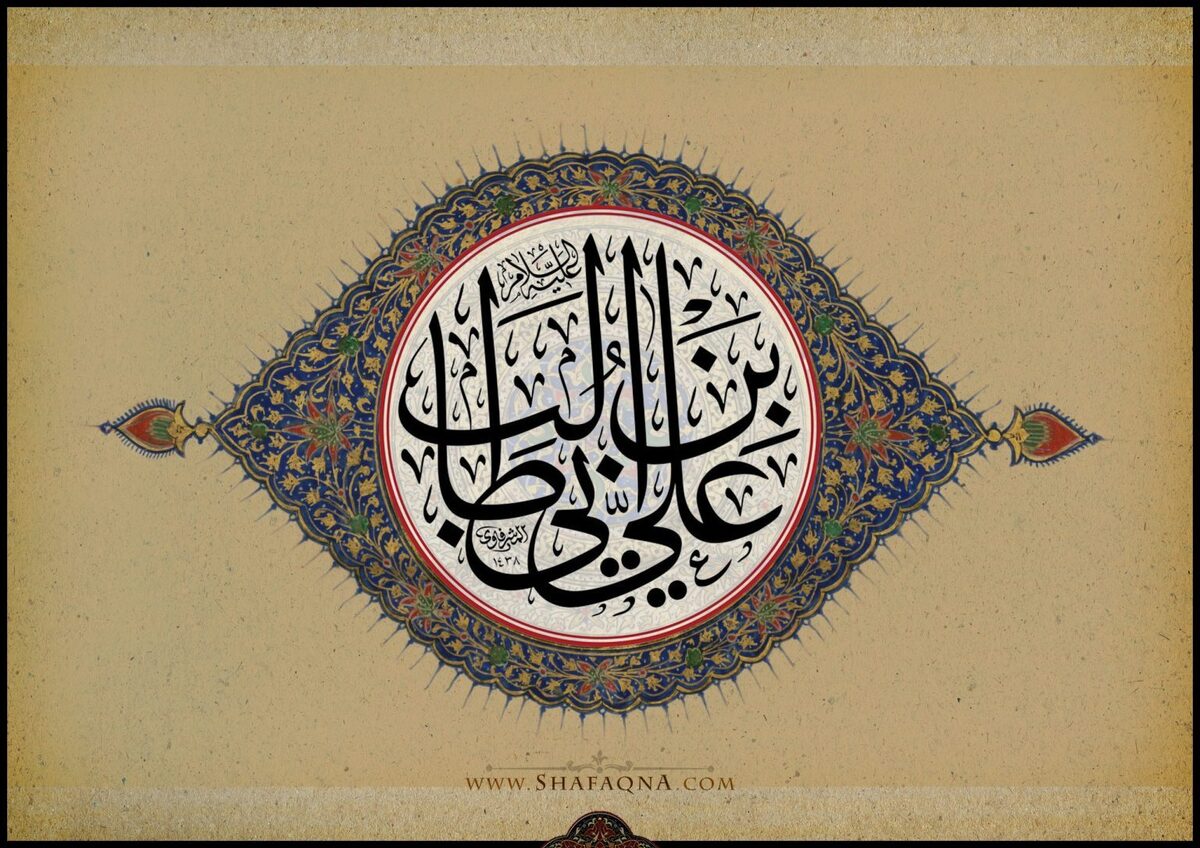 علي بن أبي طالب
عليه السلام
المشرفاوى
١٤٣٨
www.ShafaqnA.com